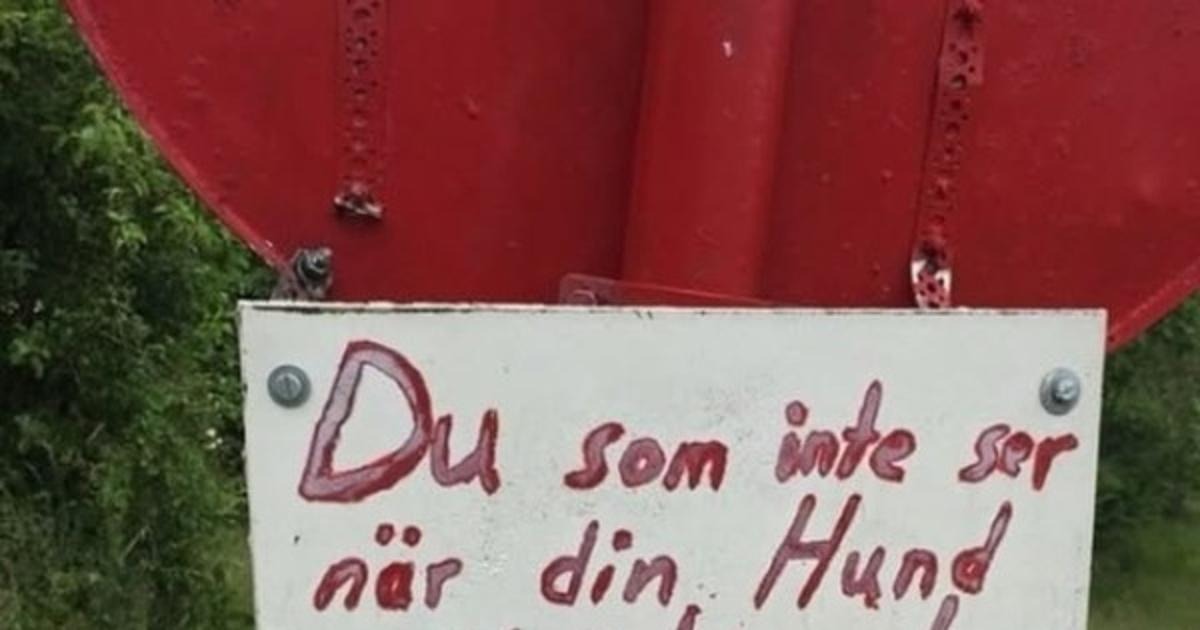 Du som inte ser
när din Hund